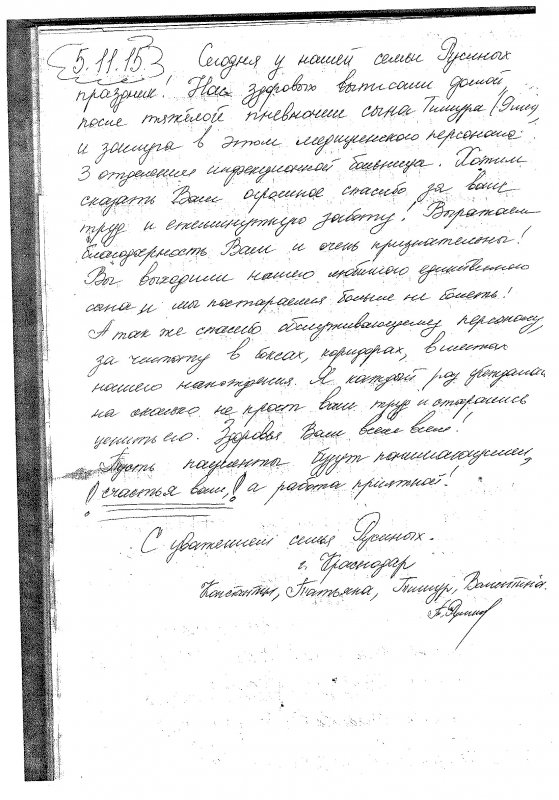 5.11.15 Сегодня у нашей семьи Русиных
праздник! Нас здоровых выписали домой
после тяжёлой пневмонии сына Тимура
и заслуга в этом медицинского персонала
3 отделения инфекционной больница. Хотим
сказать Вам огромное спасибо за ваш
труд и ежеминутную заботу! Выражаем
благодарность Вам и очень признательны!
Вы выходили нашего любимого единственного
сына и мы постараемся больше не болеть!
А так же спасибо обслуживающему персоналу,
за чистоту в боксах, коридорах, в местах
нашего нахождения. Я каждый раз убеждалась
на сколько не прост ваш труд и старались
ценить его. Здоровья Вам всем всем!
Пусть пациенты будут понимающими,
! счастья вам, ! а работа приятной!
С уважением семья Русиных.
г. Краснодар
Константин, Татьяна, Тимур, Валентина.